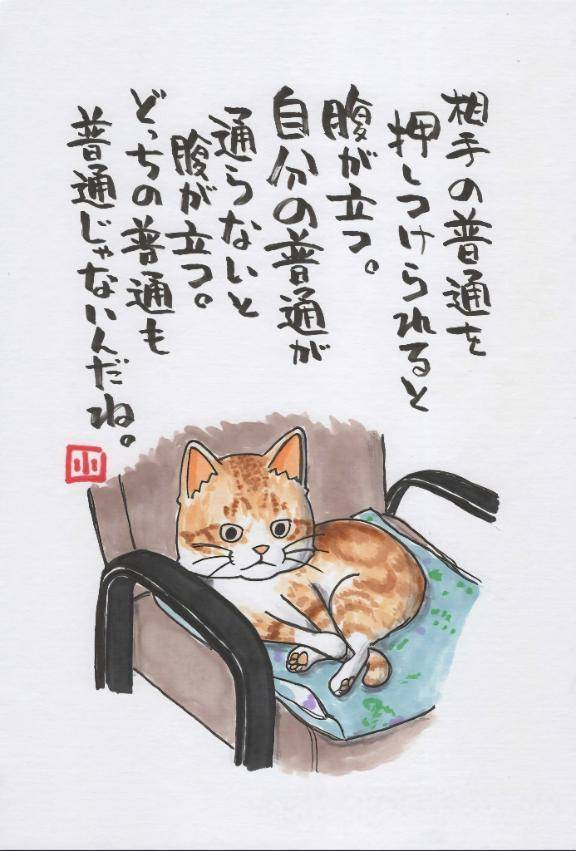 相手の普通を
押しつけられると
腹が立つ。
自分の普通が
通らないと
腹が立つ。
どっちの普通も
普通じゃないんだね。
小